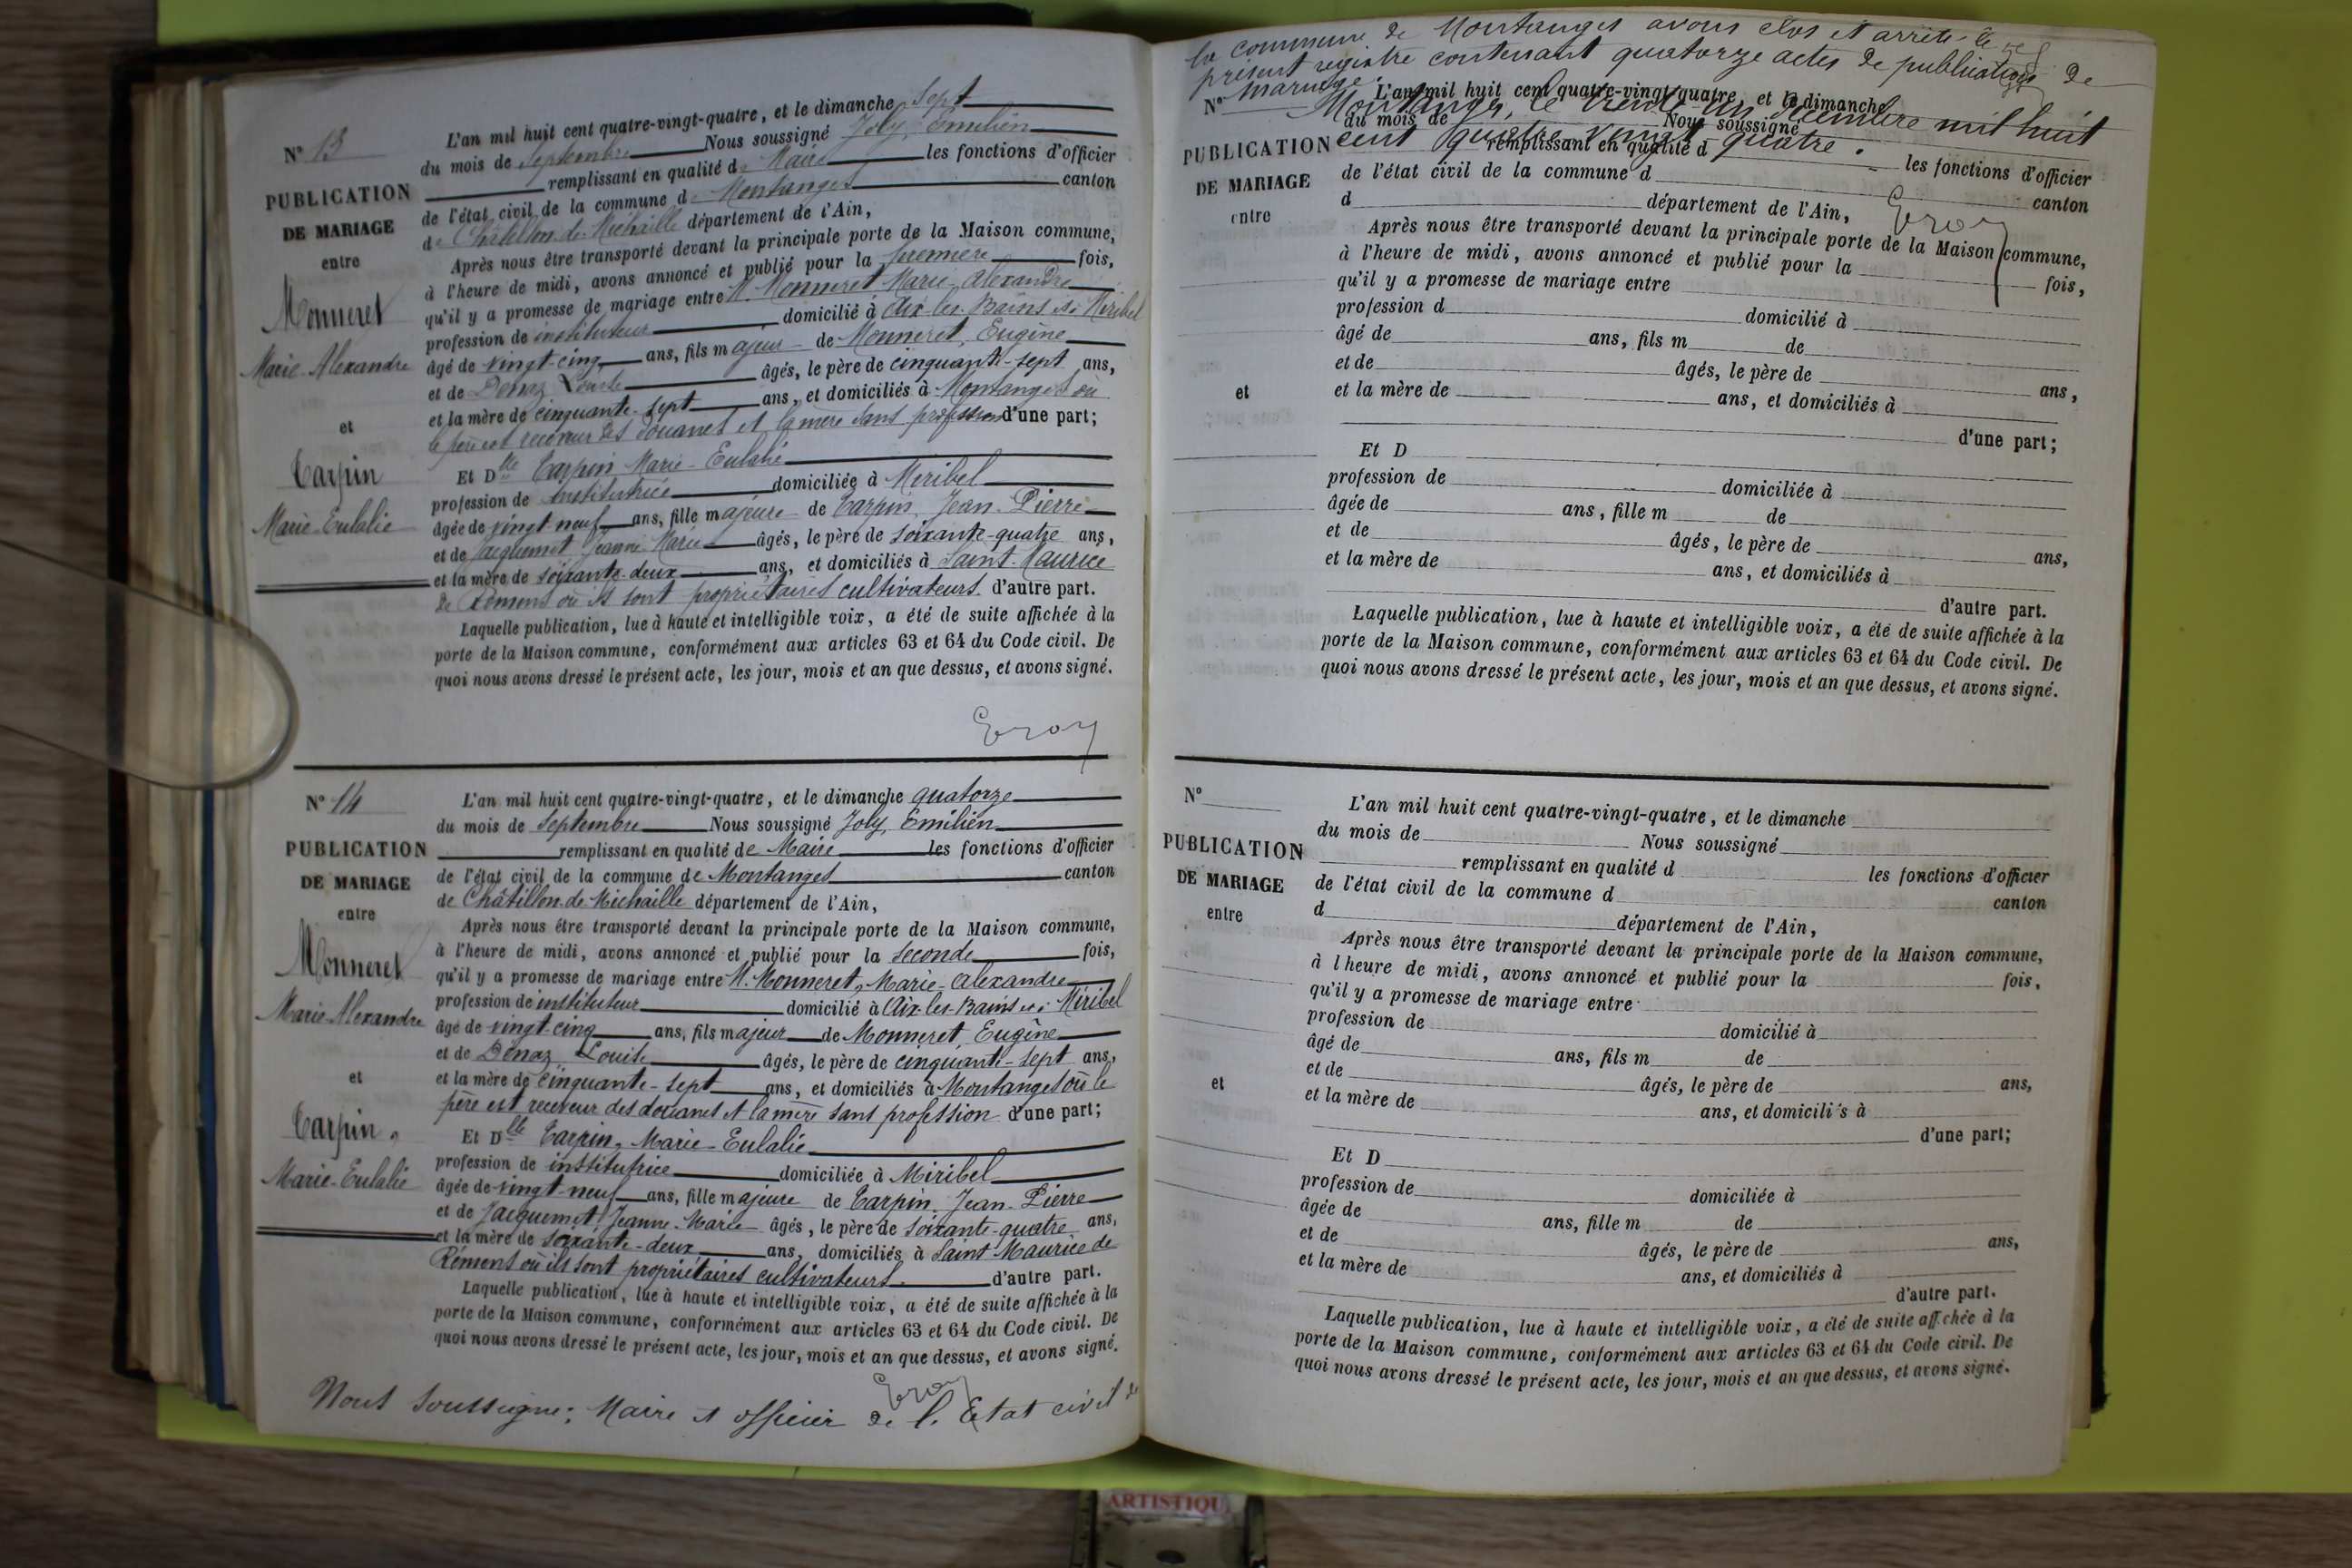 N° 13
PUBLICATION
DE MARIAGE
entre
Monneret
Marie-Alexandre
et
Carpin
Marie-Eulalie
L'an mil huit cent quatre-vingt-quatre, et le dimanche Sept
du mois de Septembre Nous soussigné Joly, Emilien
remplissant en qualité de Maire les fonctions d'officier
de l'état civil de la commune de Montanges canton
de Châtillon-de-Michaille département de l'Ain,
Après nous être transporté devant la principale porte de la Maison commune,
à l'heure de midi, avons annoncé et publié pour la première fois,
qu'il y a promesse de mariage entre M. Monneret, Marie-Alexandre
profession de instituteur domicilié à Aix-les-Bains et à Miribel
âgé de vingt-cinq ans, fils majeur de Monneret, Eugène
et de Dénaz Louise âgés, le père de cinquante-sept ans,
et la mère de cinquante-sept ans, et domiciliés à Montanges où
le père est receveur des douanes et la mère sans profession d'une part;
Et Dlle Carpin Marie-Eulalie
profession de institutrice domiciliée à Miribel
âgée de vingt-neuf ans, fille majeure de Carpin, Jean-Pierre
et de Jacquemet Jeanne-Marie âgés, le père de soixante-quatre ans,
et la mère de soixante-deux ans, et domiciliés à Saint-Maurice
de Rémens où ils sont propriétaires cultivateurs d'autre part.
Laquelle publication, lue à haute et intelligible voix, a été de suite affichée à la
porte de la Maison commune, conformément aux articles 63 et 64 du Code civil. De
quoi nous avons dressé le présent acte, les jour, mois et an que dessus, et avons signé.
N° 14
PUBLICATION
DE MARIAGE
entre
Monneret
Marie-Alexandre
et
Carpin
Marie-Eulalie
L'an mil huit cent quatre-vingt-quatre, et le dimanche quatorze
du mois de Septembre Nous soussigné Joly, Emilien
remplissant en qualité de Maire les fonctions d'officier
de l'état civil de la commune de Montanges canton
de Châtillon-de-Michaille département de l'Ain,
Après nous être transporté devant la principale porte de la Maison commune,
à l'heure de midi, avons annoncé et publié pour la seconde fois,
qu'il y a promesse de mariage entre M. Monneret, Marie-Alexandre
profession de instituteur domicilié à Aix-les-Bains et à Miribel
âgé de vingt-cinq ans, fils majeur de Monneret, Eugène
et de Dénaz Louise âgés, le père de cinquante-sept ans,
et la mère de cinquante-sept ans, et domiciliés à Montanges où le
père est receveur des douanes et la mère sans profession d'une part;
Et Dlle Carpin, Marie-Eulalie
profession de institutrice domiciliée à Miribel
âgée de vingt-neuf ans, fille majeure de Carpin, Jean-Pierre
et de Jacquemet, Jeanne-Marie âgés, le père de soixante-quatre ans,
et la mère de soixante-deux ans, domiciliés à Saint Maurice de
Rémens où ils sont propriétaires cultivateurs. d'autre part.
Laquelle publication, lue à haute et intelligible voix, a été de suite affichée à la
porte de la Maison commune, conformément aux articles 63 et 64 du Code civil. De
quoi nous avons dressé le présent acte, les jour, mois et an que dessus, et avons signé.
Nous soussigné; Maire et officier de l'Etat civil de
la commune de Montanges avons clos et arrêté le
présent registre contenant quatorze actes de publications de
mariage.
Montanges, le trente un Décembre mil huit
cent quatre vingt quatre.
N°
PUBLICATION
DE MARIAGE
entre
et
L'an mil huit cent quatre-vingt-quatre, et le dimanche
du mois de Nous soussigné
remplissant en qualité d les fonctions d'officier
de l'état civil de la commune d canton
d département de l'Ain,
Après nous être transporté devant la principale porte de la Maison commune,
à l'heure de midi, avons annoncé et publié pour la fois,
qu'il y a promesse de mariage entre
profession d domicilié à
âgé de ans, fils m de
et de âgés, le père de ans,
et la mère de ans, et domiciliés à
d'une part;
Et D
profession de domiciliée à
âgée de ans, fille m de
et de âgés, le père de ans,
et la mère de ans, et domiciliés à
d'autre part.
Laquelle publication, lue à haute et intelligible voix, a été de suite affichée à la
porte de la Maison commune, conformément aux articles 63 et 64 du Code civil. De
quoi nous avons dressé le présent acte, les jour, mois et an que dessus, et avons signé.
N°
PUBLICATION
DE MARIAGE
entre
et
L'an mil huit cent quatre-vingt-quatre, et le dimanche
du mois de Nous soussigné
remplissant en qualité d les fonctions d'officier
de l'état civil de la commune d canton
d département de l'Ain,
Après nous être transporté devant la principale porte de la Maison commune,
à l heure de midi, avons annoncé et publié pour la fois,
qu'il y a promesse de mariage entre
profession de domicilié à
âgé de ans, fils m de
et de âgés, le père de ans,
et la mère de ans, et domicili's à
d'une part;
Et D
profession de domiciliée à
âgée de ans, fille m de
et de âgés, le père de ans,
et la mère de ans, et domiciliés à
d'autre part.
Laquelle publication, lue à haute et intelligible voix, a été de suite affichée à la
porte de la Maison commune, conformément aux articles 63 et 64 du Code civil. De
quoi nous avons dressé le présent acte, les jour, mois et an que dessus, et avons signé.
ARTISTIQU